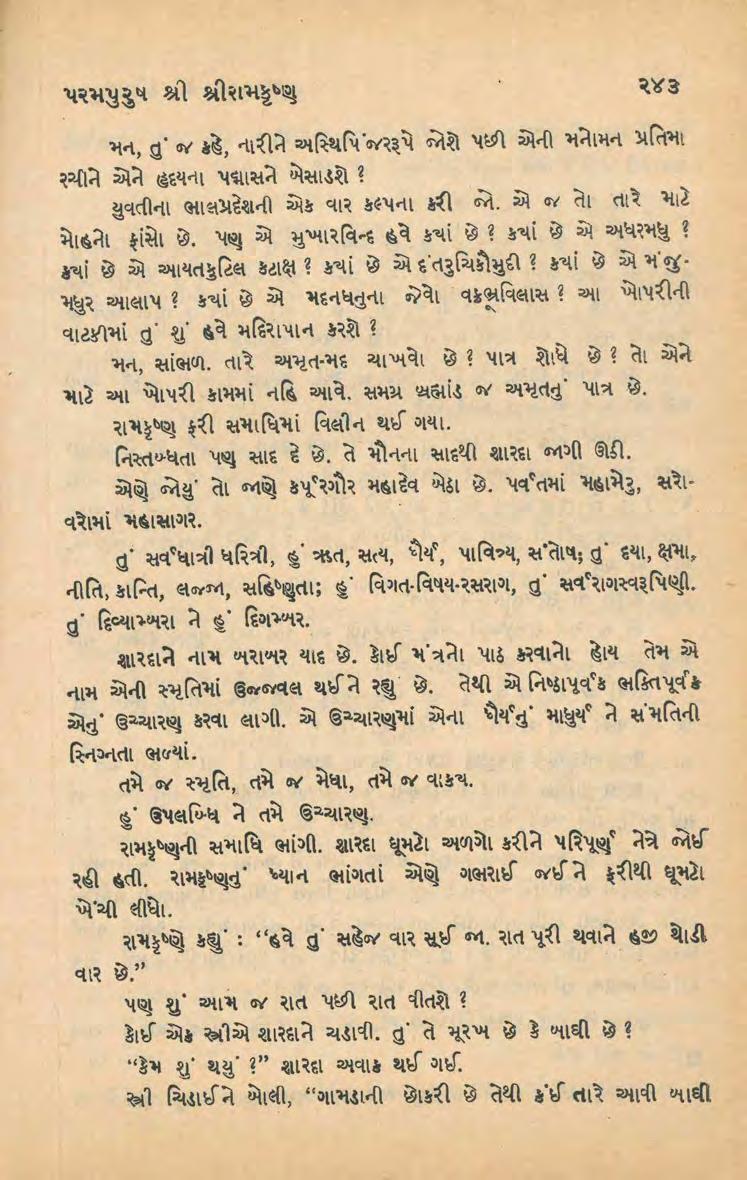 પરમપુરુષ શ્રી શ્રીરામકૃષ્ણ ૨૪૩
મન, તું જ કહે, નારીને અસ્થિપિંજરરૂપે જોશે પછી એની મનોમન પ્રતિમા
રચીને એને હૃદયના પદ્માસને બેસાડશે ?
યુવતીના ભાલપ્રદેશની એક વાર કલ્પના કરી જો. એ જ તો તારે માટે
મોહનો ફાંસો છે. પણ એ મુખારવિન્દ હવે કયાં છે ? કયાં છે એ અધરમધુ ?
કયાં છે એ આયતકુટિલ કટાક્ષ ? કયાં છે એ દંતરુચિકૌમુદી ? કયાં છે એ મંજુ-
મધુર આલાપ ? કયાં છે એ મદનધનુના જેવો વક્રભ્રૂવિલાસ ? આ ખોપરીની
વાટકીમાં તું શું હવે મદિરાપાન કરશે ?
મન, સાંભળ. તારે અમૃત-મદ ચાખવો છે ? પાત્ર શોધે છે ? તો એને
માટે આ ખોપરી કામમાં નહિ આવે. સમગ્ર બ્રહ્માંડ જ અમૃતનું પાત્ર છે.
રામકૃષ્ણ ફરી સમાધિમાં વિલીન થઈ ગયા.
નિસ્તબ્ધતા પણ સાદ દે છે. તે મૌનના સાદથી શારદા જાગી ઊઠી.
એણે જોયું તો જાણે કર્પૂરગૌર મહાદેવ બેઠા છે. પર્વતમાં મહામેરુ, સરો-
વરોમાં મહાસાગર.
તું સર્વધાત્રી ધરિત્રી, હું ઋત, સત્ય, ધૈર્ય, પાવિત્ર્ય, સંતોષ; તું દયા, ક્ષમા,
નીતિ, કાન્તિ, લજ્જા, સહિષ્ણુતા; હું વિગત-વિષય-રસરાગ, તું સર્વરાગસ્વરૂપિણી.
તું દિવ્યામ્બરા ને હું દિગમ્બર.
શારદાને નામ બરાબર યાદ છે. કોઈ મંત્રનો પાઠ કરવાનો હોય તેમ એ
નામ એની સ્મૃતિમાં ઉજ્જવલ થઈને રહ્યું છે. તેથી એ નિષ્ઠાપૂર્વક ભક્તિપૂર્વક
એનું ઉચ્ચારણ કરવા લાગી. એ ઉચ્ચારણમાં એના ધૈર્યનું માધુર્ય ને સંમતિની
સ્નિગ્નતા ભળ્યાં.
તમે જ સ્મૃતિ, તમે જ મેધા, તમે જ વાકય.
હું ઉપલબ્ધિ ને તમે ઉચ્ચારણ.
રામકૃષ્ણની સમાધિ ભાંગી. શારદા ઘૂમટો અળગો કરીને પરિપૂર્ણ નેત્રે જોઈ
રહી હતી. રામકૃષ્ણનું ધ્યાન ભાંગતાં એણે ગભરાઈ જઈને ફરીથી ઘૂમટો
ખેંચી લીધો.
રામકૃષ્ણે કહ્યું : “હવે તું સહેજ વાર સૂઈ જા. રાત પૂરી થવાને હજી થોડી
વાર છે.”
પણ શું આમ જ રાત પછી રાત વીતશે ?
કોઈ એક સ્ત્રીએ શારદાને ચડાવી. તું તે મૂરખ છે કે બાઘી છે ?
“કેમ શું થયું ?” શારદા અવાક થઈ ગઈ.
સ્ત્રી ચિડાઈને બોલી, “ગામડાની છોકરી છે તેથી કંઈ તારે આવી બાઘી